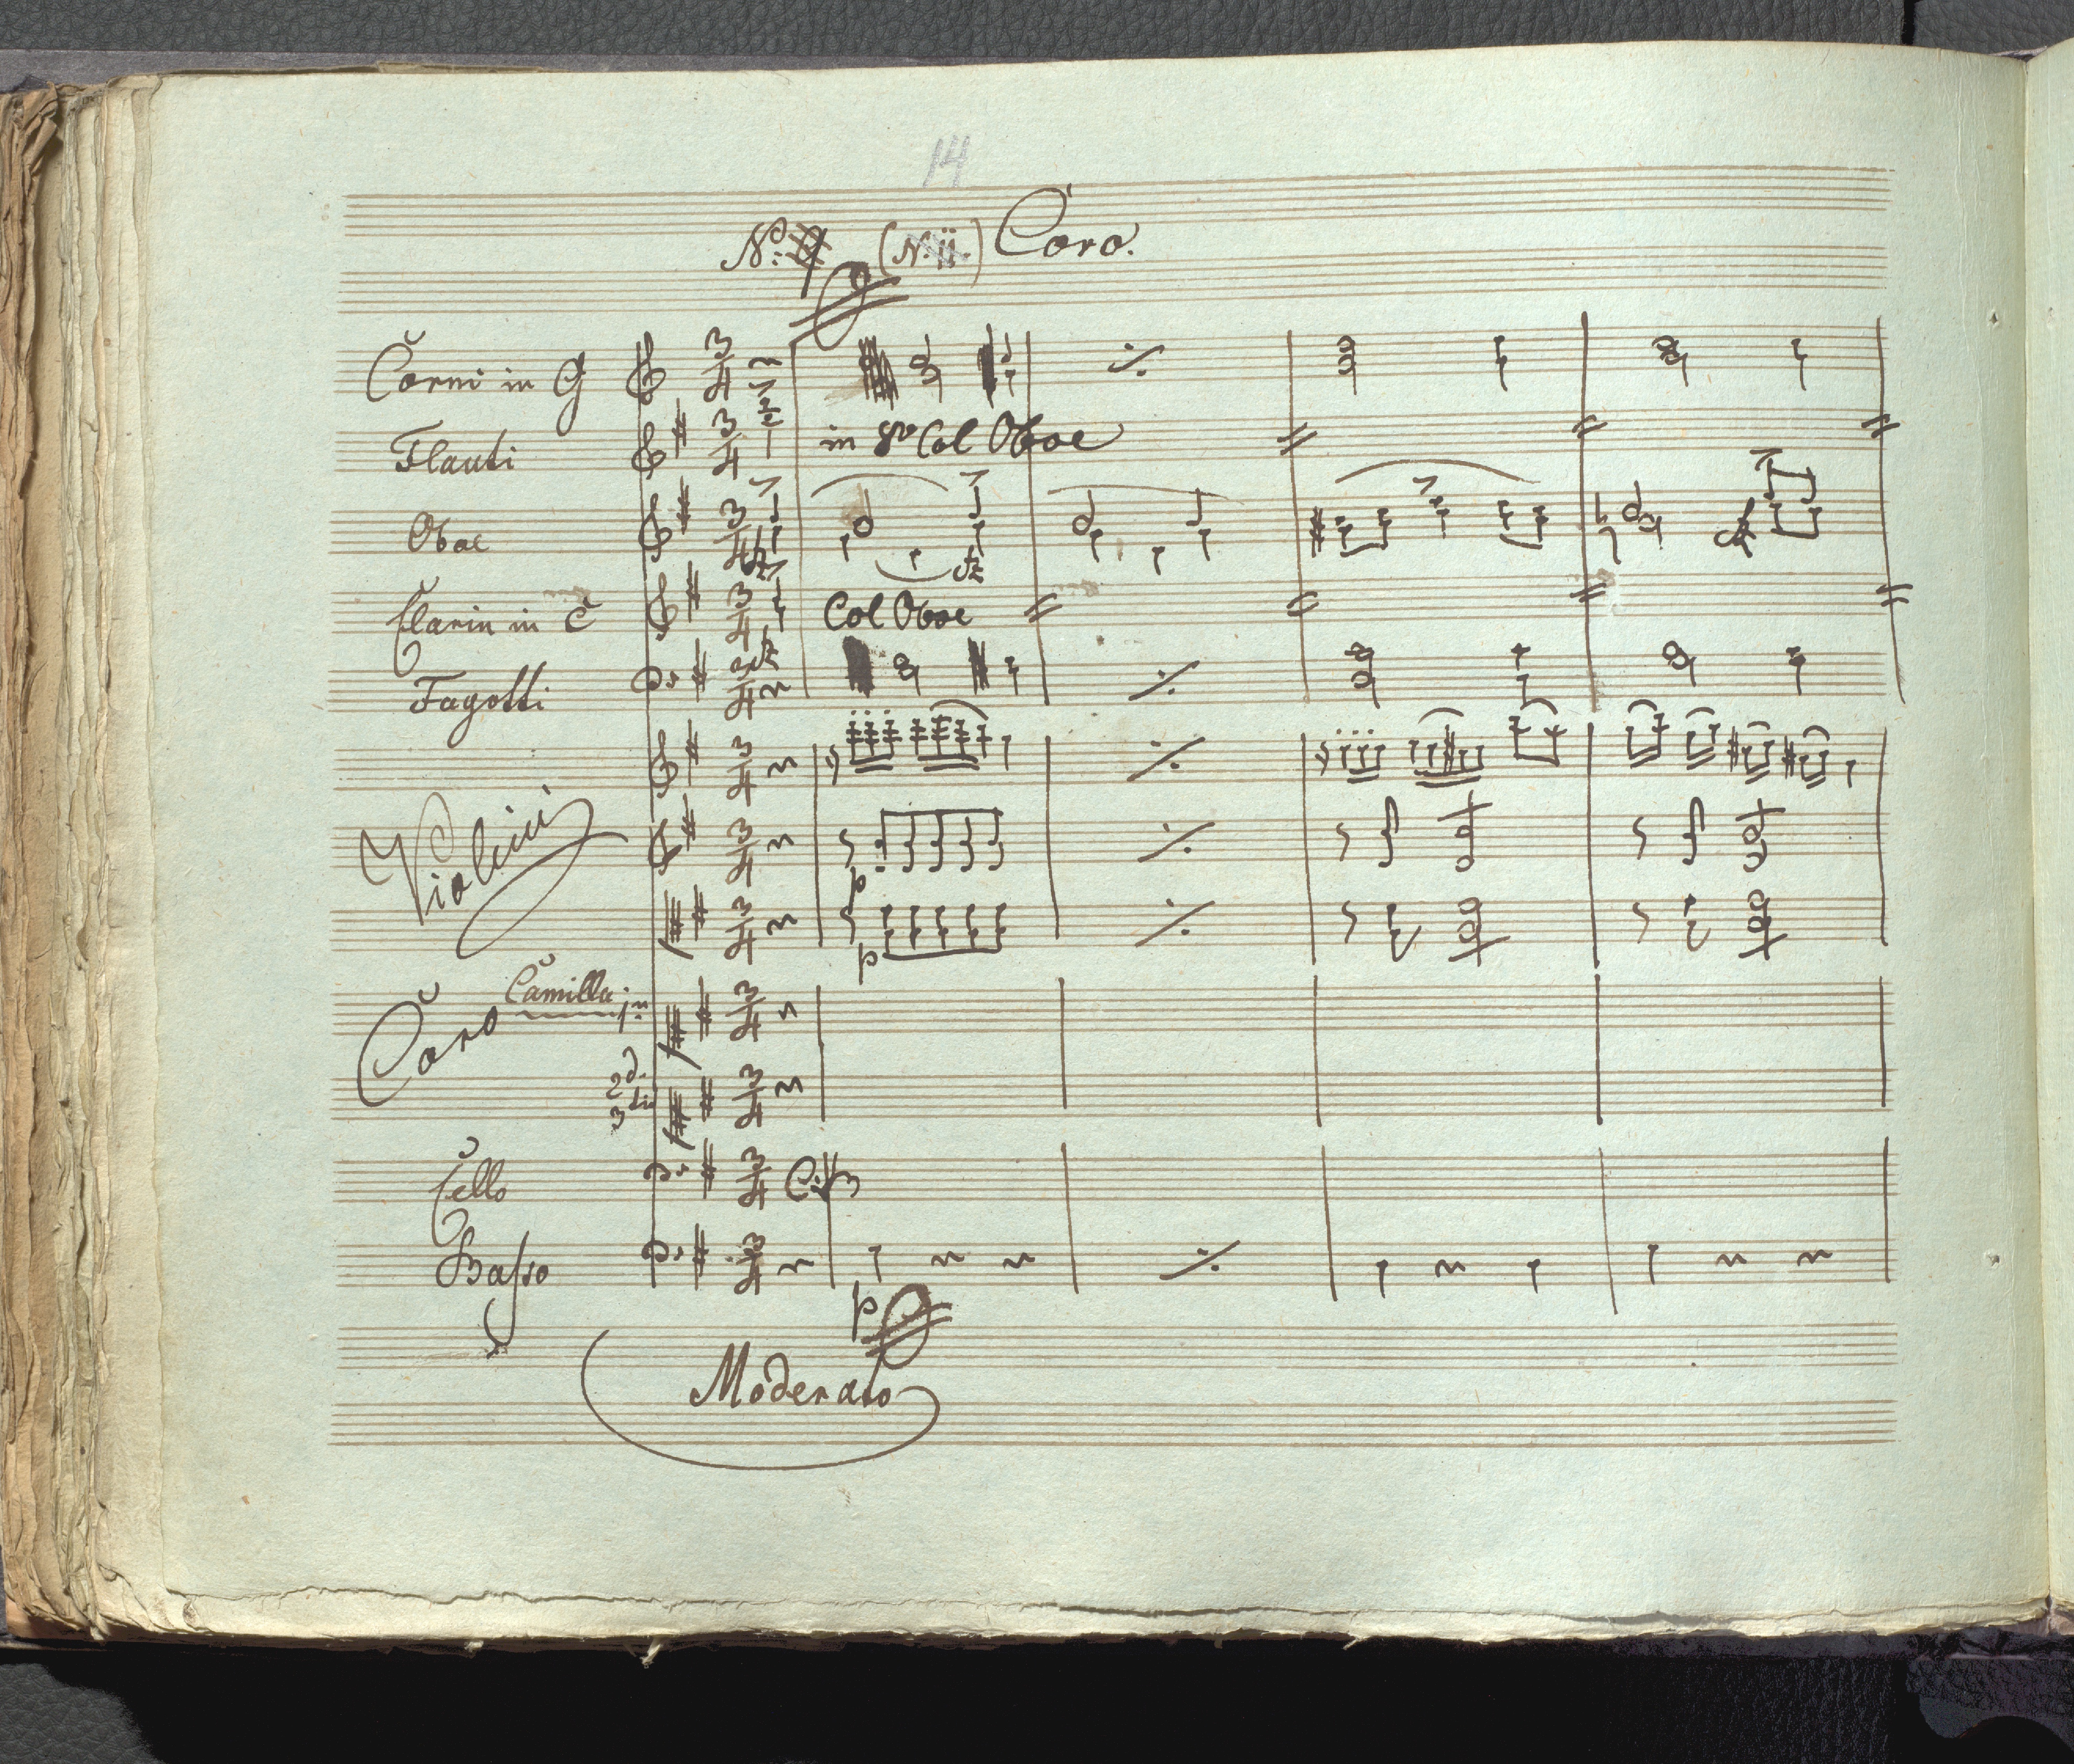 14
No. 9 (N. ii.) Coro.
Corni in G
Flauti in 8va Col Oboe
Oboe fz fz
Clarin in C Col Oboe
Fagotti
Violini
p
p
Coro Camilla 1mo
2do
3tio
Cello C: B
Basso
p
Moderato